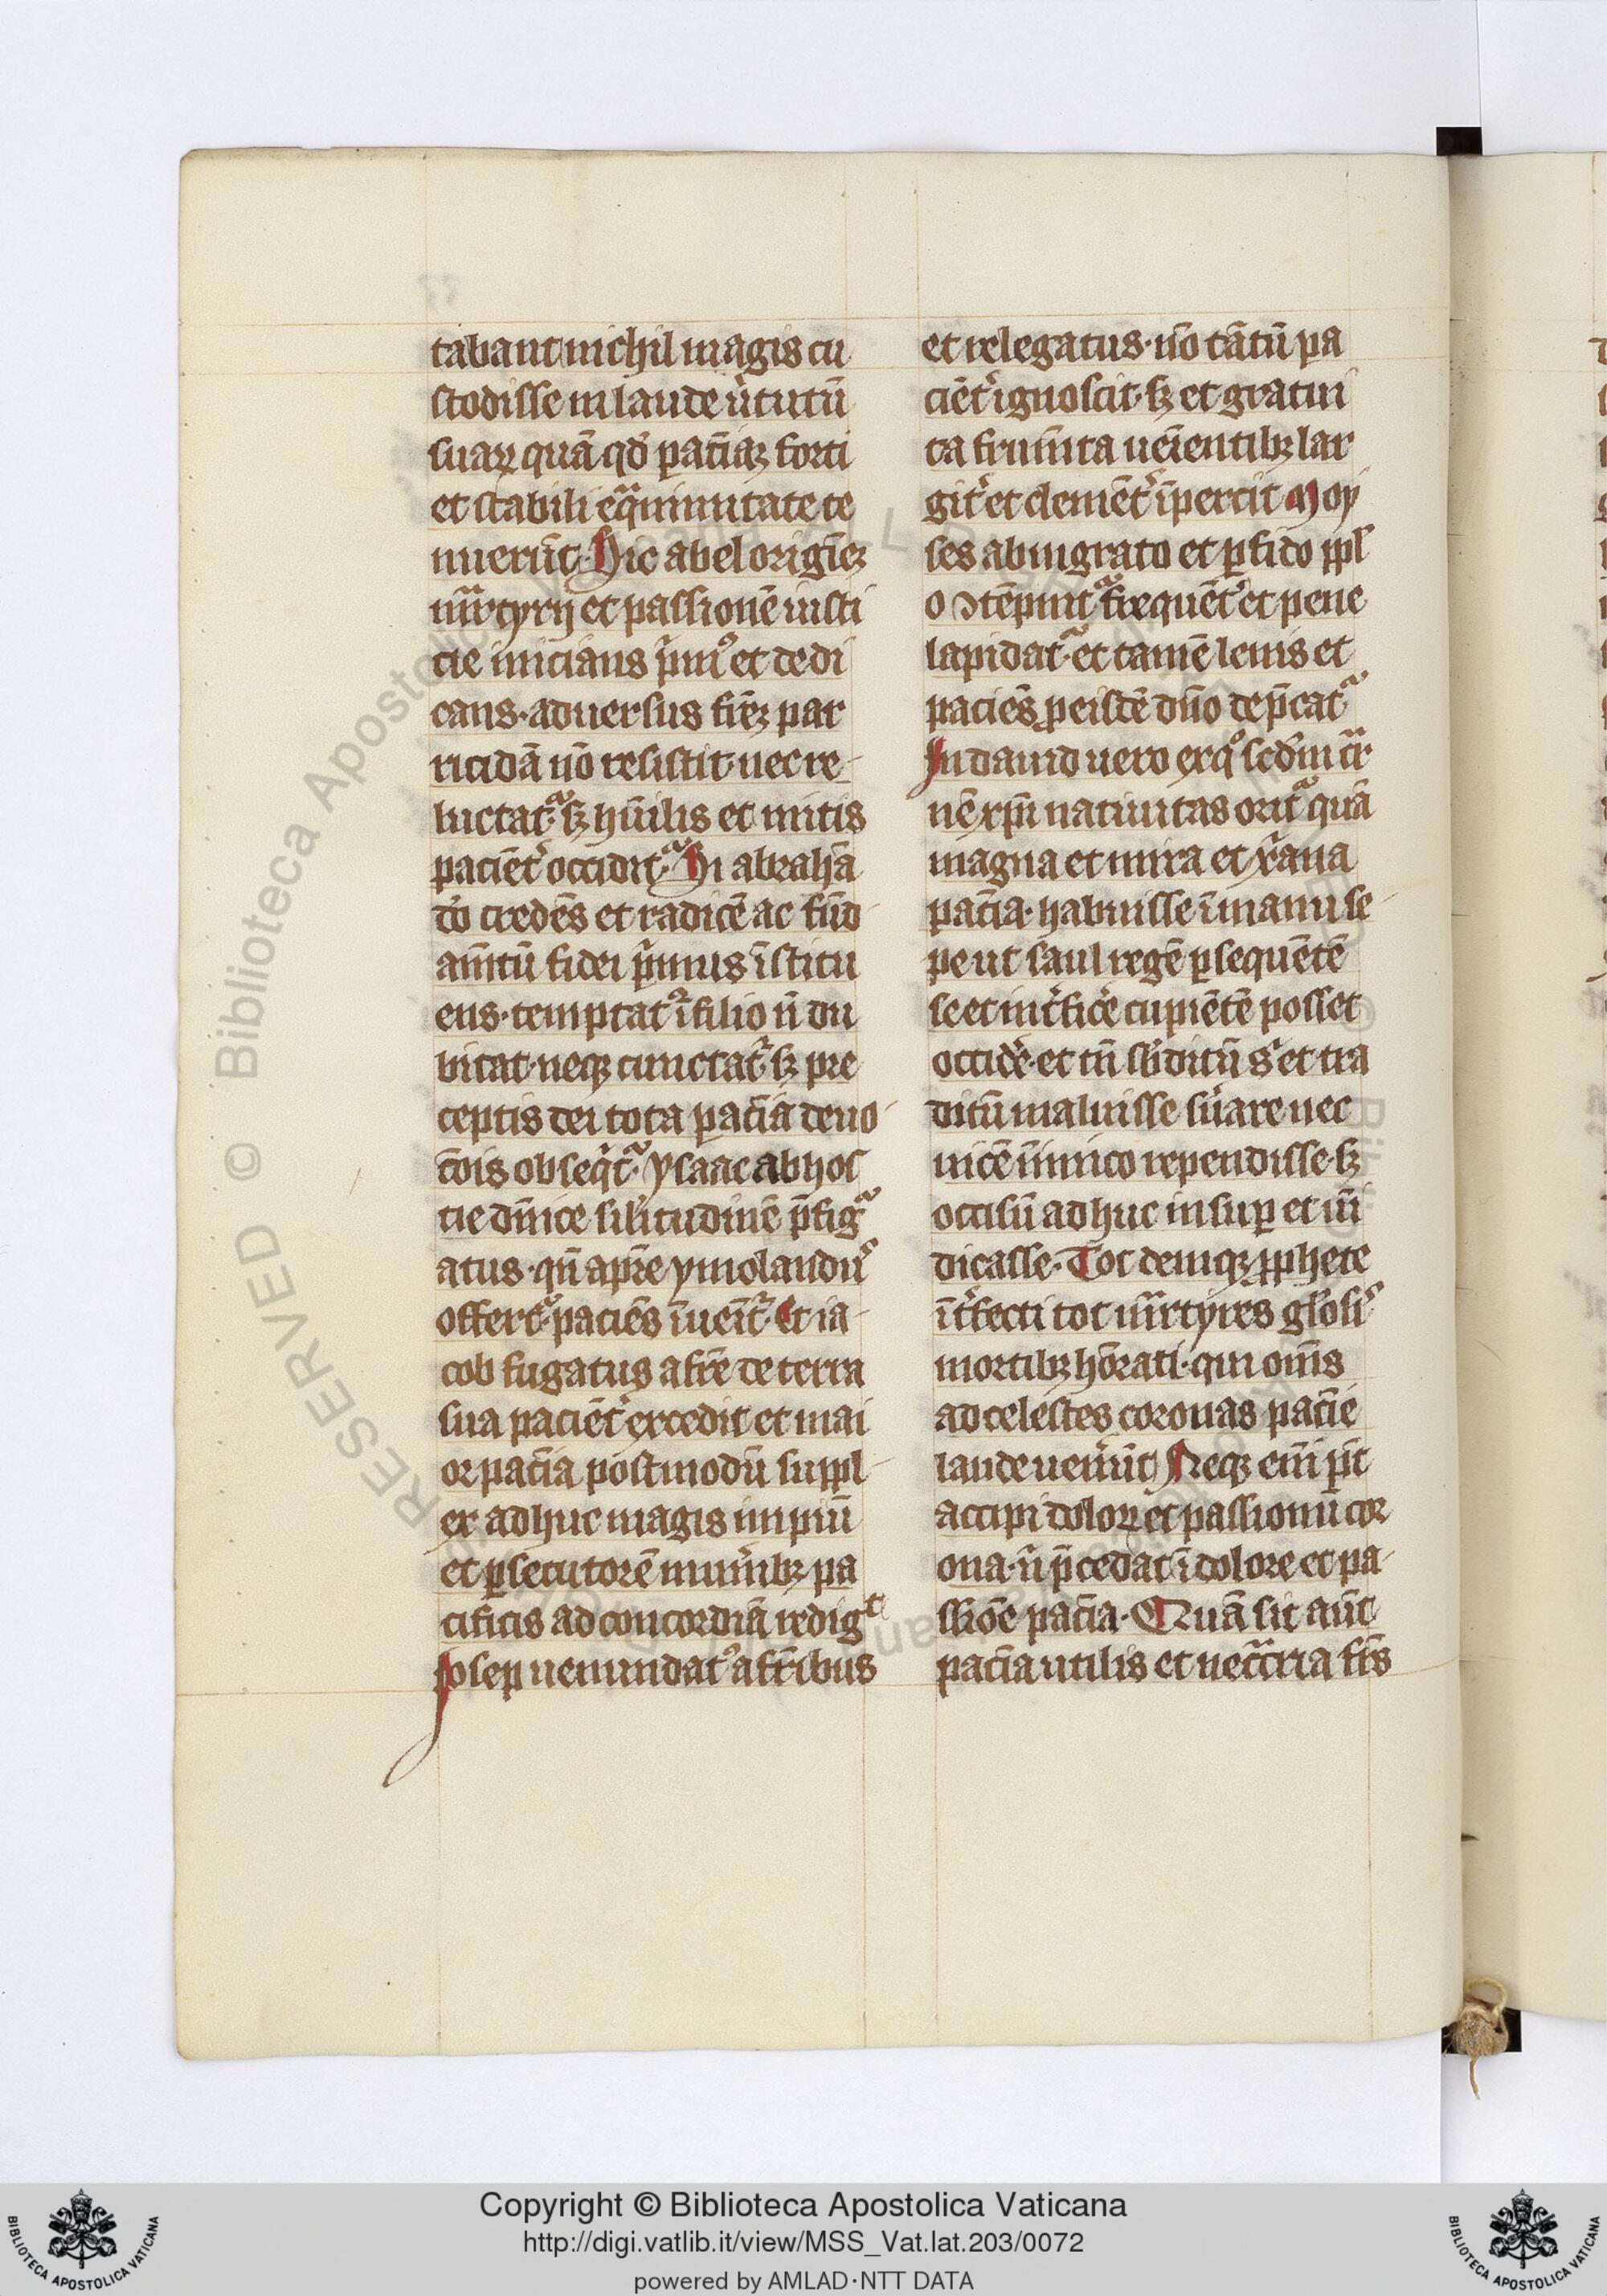 tabant nichil magis cu
stodisse in laude u̓tutū
suaꝝ quā qd̓ paciāꝫ forti
et stabili eqͣnimitate te
nuerūt. Hic abel origīeꝫ
mͣrtyrij et passionē iusti
cie inicians p̓mꝰ et dedi
cans. aduersus fr̄eꝫ par
ricidā nō resistit. nec re-
luctat᷑. sꝫ hūilis et mitis
paciēt̓ occidit᷑. Hi abrahā
dō credēs et radicē ac fūd
am̄tū fidei p̓mus īstitu
ens. temptatꝰ ī filio n̄ du
bitat. neqꝫ cunctat᷑. sꝫ pre
ceptis dei tota pacīa deuo
tōis obseq̓t᷑. ysaac ab hos
tie dn̄ice sil̓itudinē p̄fig᷑
atus. qn̄ a pr̄e ymolandus
offert᷑. paciēs īueīt᷑. Et ia-
cob fugatus a fr̄e de terra
sua paciēt̓ excedit et mai
or pacīa postmodū suppl
ex adhuc magis impiū
et ꝑsecutorē mun̓ibꝫ pa
cificis ad concordiā redigͭ
Iosep uenundatꝰ a fr̄ibus
et relegatus. nō tātū pa
ciēt̓ ignoscit. sꝫ et gratui
ta frum̄ta uēientibꝫ lar
git᷑ et clemēt̓ īpertit Moy
ses ab ingrato et ꝑfido ppl̓
o ↄtēpnit᷑ freq̄uēt̓ et pene
lapidat᷑. et tamē lenis et
paciēs ꝓ eisdē dn̄o dep̄cat᷑
In dauid uero ex qͦ scd̓m cͣr
nē xp̄i natiuitas orit᷑ quā
magna et mira et xp̄iana
pacīa. habuisse ī manu se
pe ut saul regē ꝑsequētē
se et int̓fic̓e cupiētē posset
occid̓e. et tn̄ sb̓ditū s̓ et tra
ditū maluisse s̓uare nec
uicē īimico rependisse. sꝫ
occisū adhuc insuꝑ et uī
dicasse. Tot deniqꝫ ꝓphete
īt̓fecti tot mͣrtyres gl̓osis
mortibꝫ hōrati. qui om̄s
ad celestes coronas pacīe
laude uen̓ūt Neqꝫ eni̅ p̄t
accipi doloꝝ et passionū cor
ona. n̄ p̄cedat ī dolore et pa
ssiōe pacīa. Quā sit aūt
pacīa utilis et necͣcria frs̄
Copyright © Biblioteca Apostolica Vaticana
http://digi.vatlib.it/view/MSS_Vat.lat.203/0072
powered by AMLAD·NTT DATA